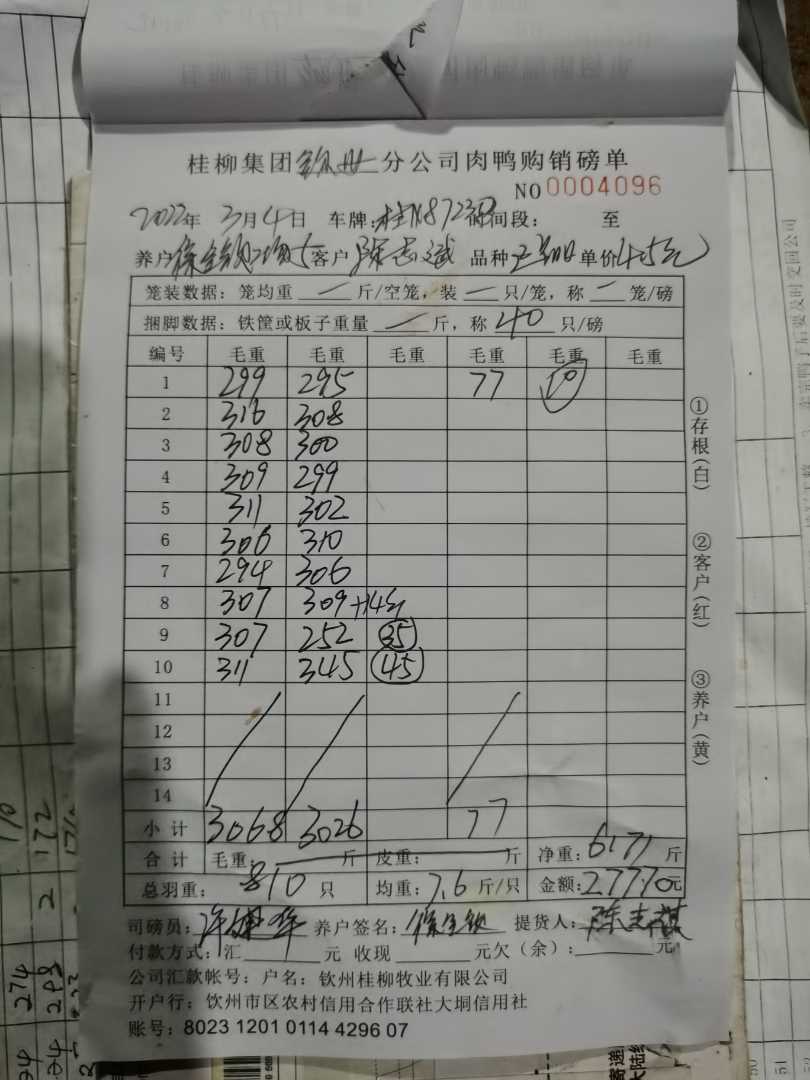 桂柳集团钦州分公司肉鸭购销磅单
NO 0004096
2022年 3月4日 车牌:桂N8723 时间段: 至
养户 徐金钦 客户 陈志斌 品种 单价4.5元
笼装数据: 笼均重 — 斤/空笼, 装 — 只/笼, 称 — 笼/磅
捆脚数据: 铁筐或板子重量 — 斤, 称 40 只/磅
编号 毛重 毛重 毛重 毛重 毛重 毛重
1 299 295 77 10
2 316 308
3 308 300
4 309 299
5 311 302
6 306 310
7 294 306
8 307 309+14
9 307 252 35
10 311 345 45
11
12
13
14
小计 3068 3026 77
合计 毛重: 斤 皮重: 斤 净重: 6171 斤
总羽重: 810 只 均重: 7.6 斤/只 金额: 27770元
司磅员: 养户签名: 徐金钦 提货人: 陈志
付款方式: 汇 元 收现 元欠(余): 元
公司汇款帐号: 户名: 钦州桂柳牧业有限公司
开户行: 钦州市区农村信用合作联社大垌信用社
账号: 8023 1201 0114 4296 07
①存根(白)
②客户(红)
③养户(黄)
110
172
2
274
293